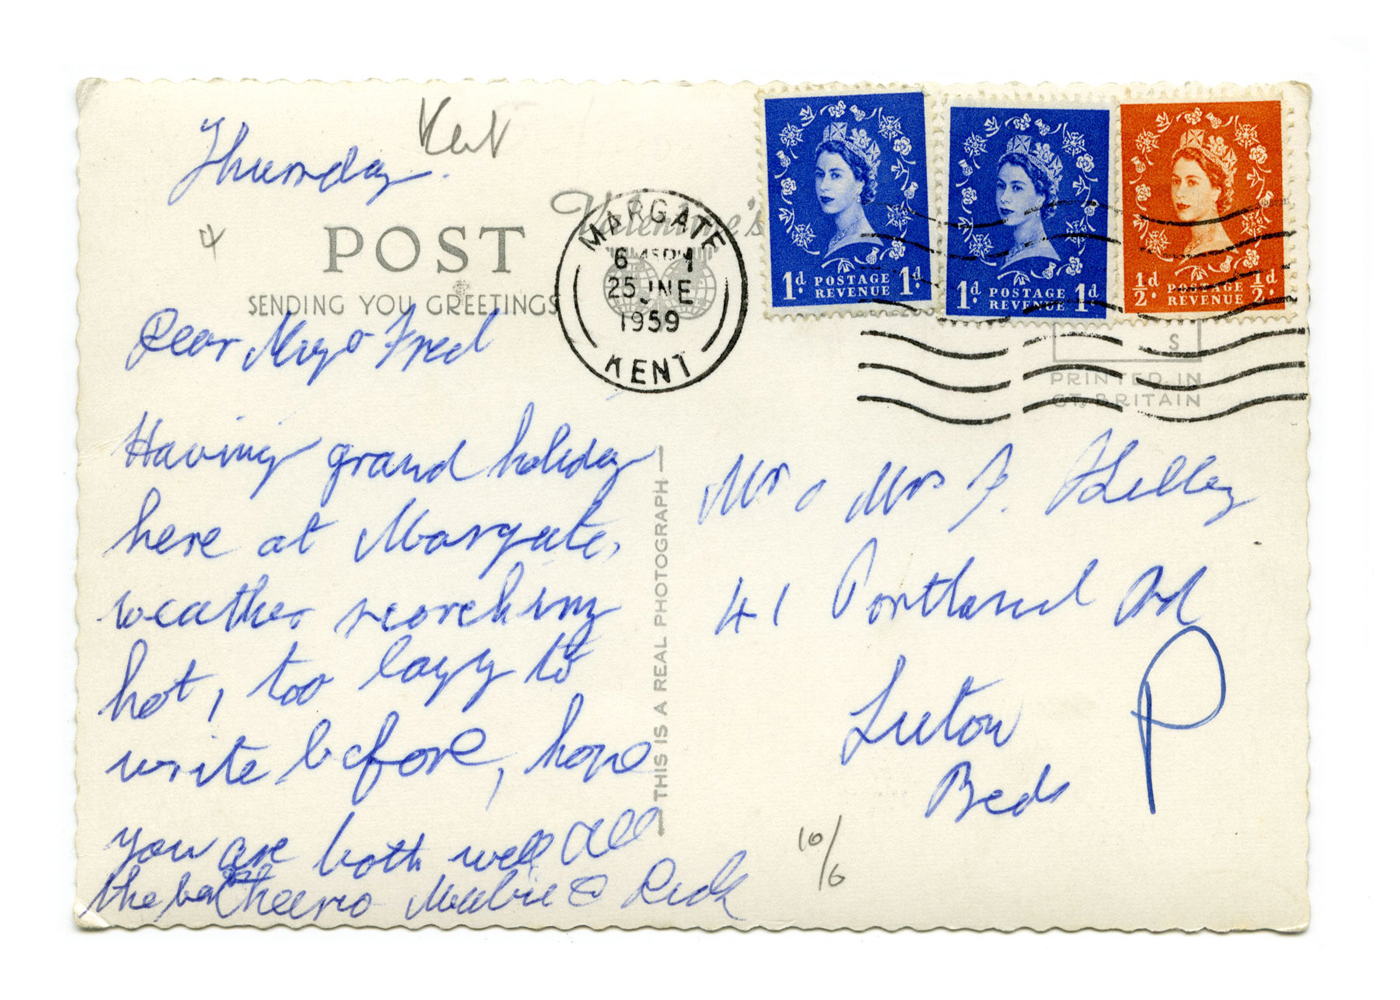 Kent
Thursday.
Valentine's
POST
SENDING YOU GREETINGS
MARGATE
6 45 PM
25 JNE
1959
KENT
1d. POSTAGE REVENUE 1d.
1d. POSTAGE REVENUE 1d.
½d. POSTAGE REVENUE ½d.
S
PRINTED IN
GT. BRITAIN
Dear May & Fred
Having grand holiday
here at Margate,
weather scorching
hot, too lazy to
write before, hope
you are both well All
the best Cheerio & Dick
THIS IS A REAL PHOTOGRAPH
Mr & Mrs F.
41 Portland Rd
Luton
Beds
P
10/6